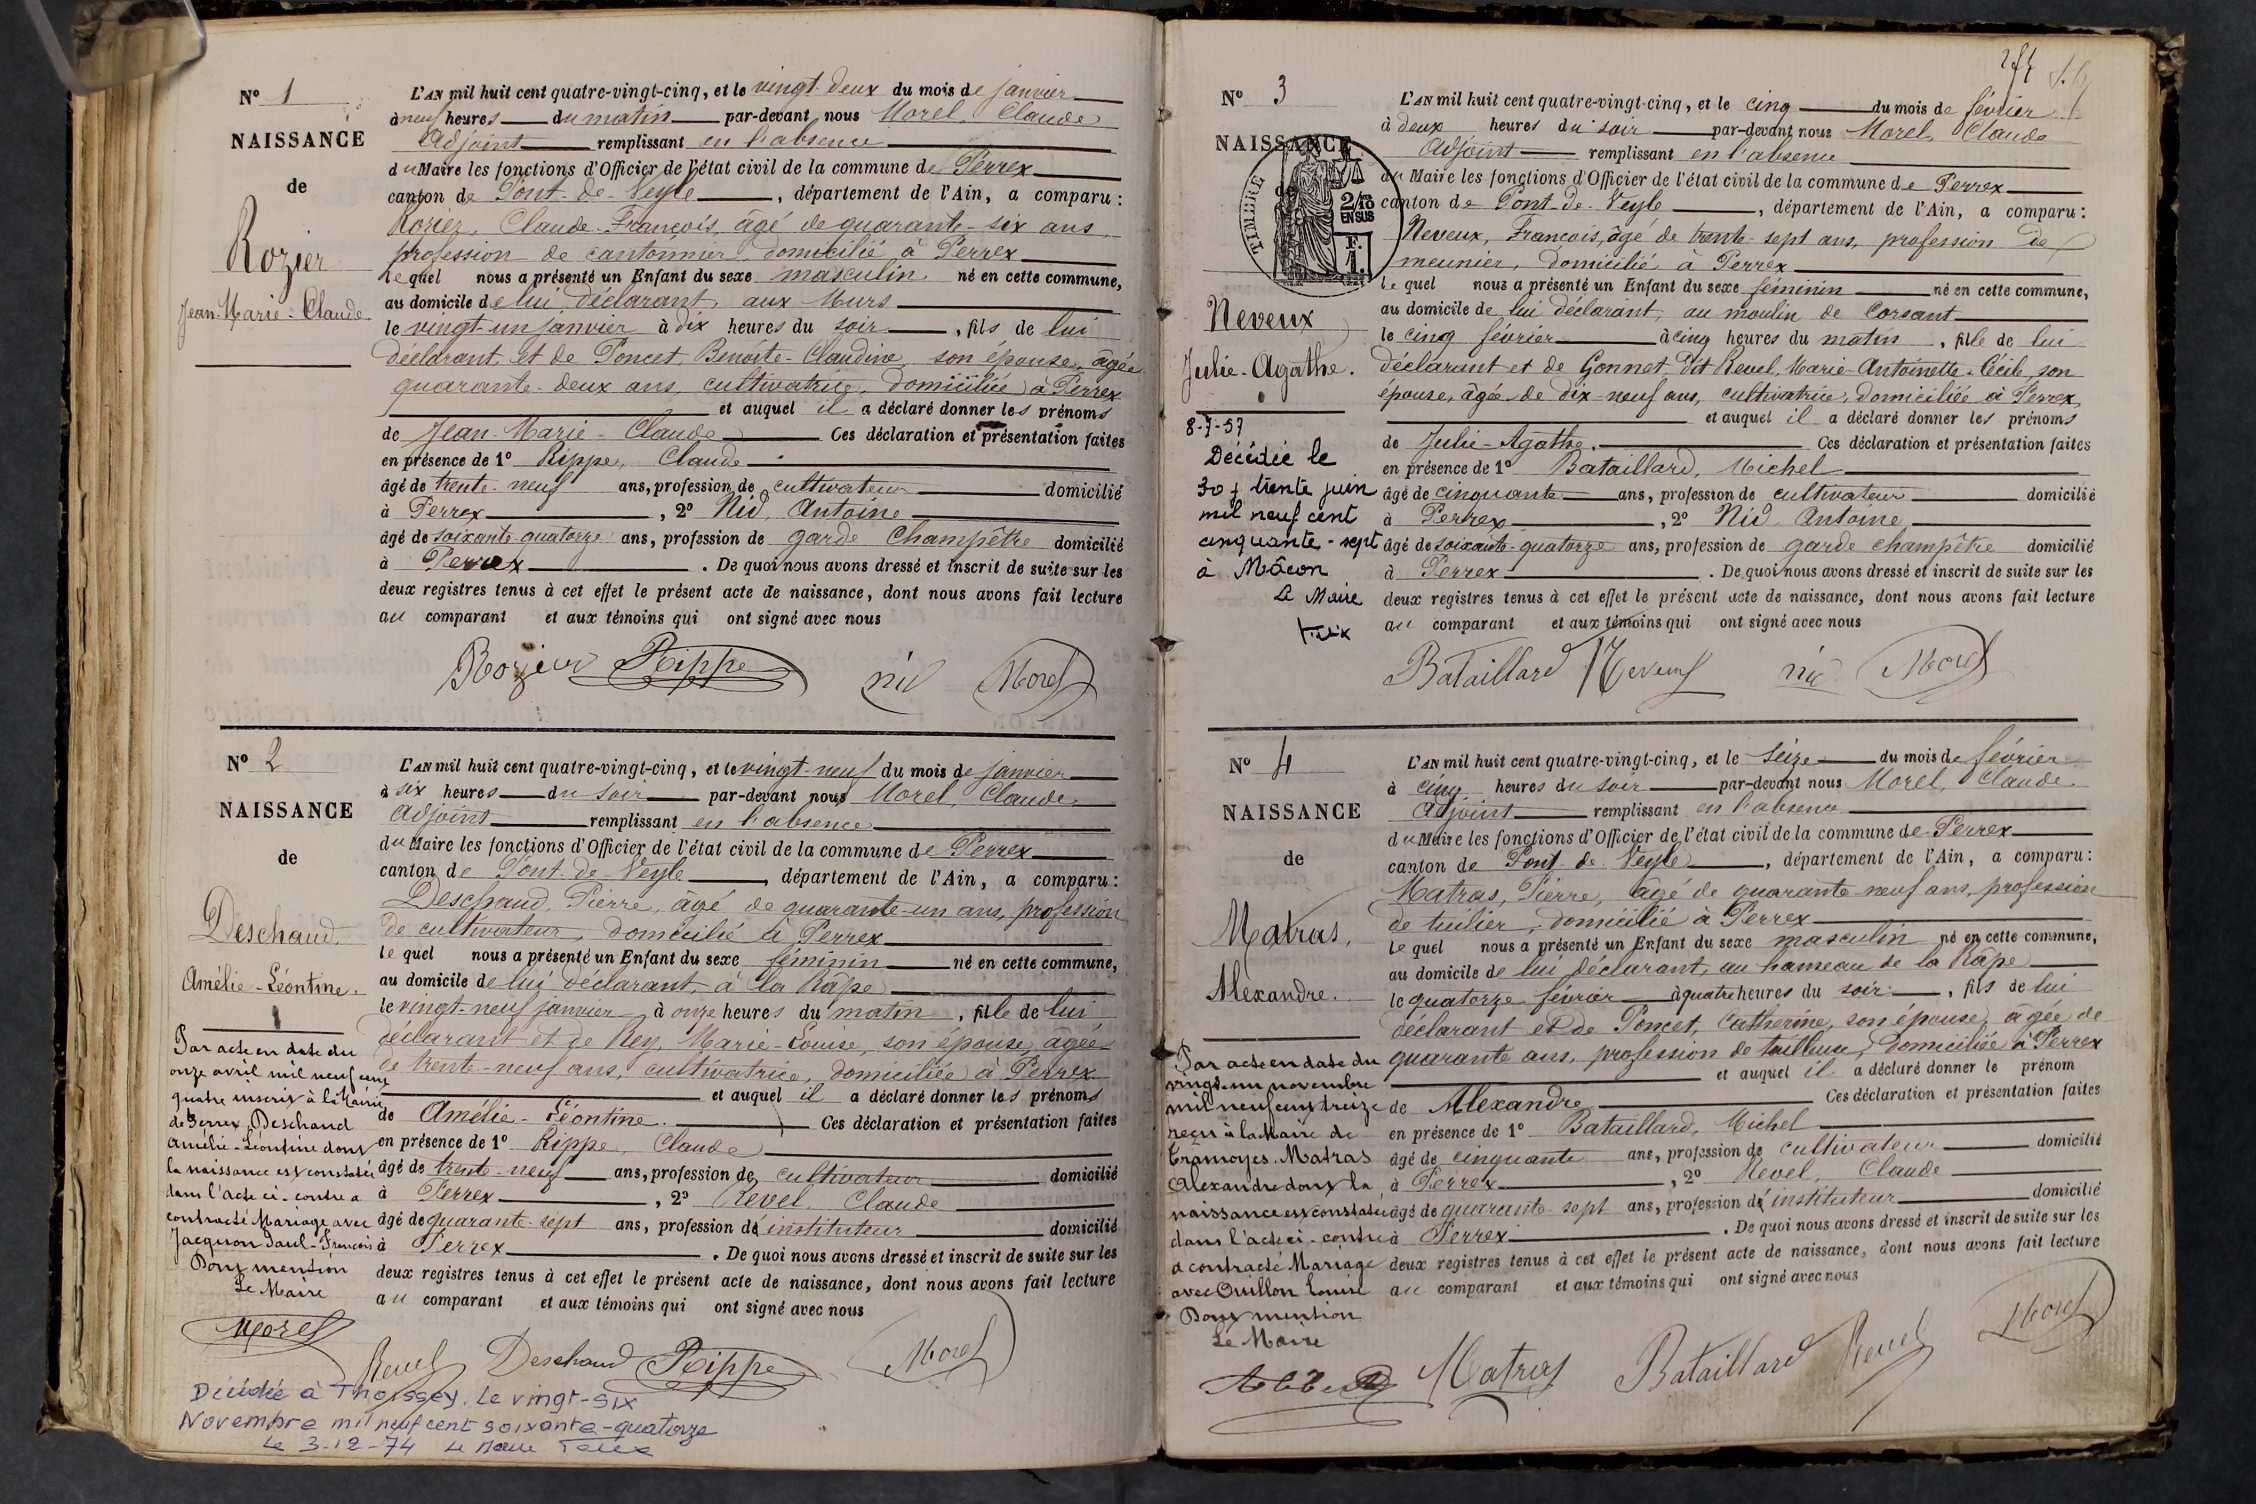 N° 1
NAISSANCE
de
Rozier
Jean-Marie-Claude.
L'AN mil huit cent quatre-vingt-cinq, et le vingt-deux du mois de janvier
à neuf heures du matin par-devant nous Morel, Claude
Adjoint remplissant en l'absence
du Maire les fonctions d'Officier de l'état civil de la commune de Perrex
canton de Pont-de-Veyle, département de l'Ain, a comparu :
Rozier, Claude-François, âgé de quarante-six ans,
profession de cantonnier, domicilié à Perrex
lequel nous a présenté un Enfant du sexe masculin né en cette commune,
au domicile de lui déclarant, aux Murs
le vingt-un janvier à dix heures du soir, fils de lui
déclarant et de Poncet, Benoîte-Claudine, son épouse, âgée
quarante-deux ans, cultivatrice, domiciliée à Perrex
et auquel il a déclaré donner les prénoms
de Jean-Marie-Claude Ces déclaration et présentation faites
en présence de 1° Rippe, Claude
âgé de trente-neuf ans, profession de cultivateur domicilié
à Perrex, 2° Nid, Antoine
âgé de soixante-quatorze ans, profession de garde champêtre domicilié
à Perrex. De quoi nous avons dressé et inscrit de suite sur les
deux registres tenus à cet effet le présent acte de naissance, dont nous avons fait lecture
au comparant et aux témoins qui ont signé avec nous
Rozier Rippe nid Morel
N° 2
NAISSANCE
de
Deschaud,
Amélie-Léontine.
Par acte en date du
onze avril mil neuf cent
quatre inscrit à la Mairie
de Perrex, Deschaud
Amélie-Léontine dont
la naissance est constatée
dans l'acte ci-contre a
contracté Mariage avec
Jacquon Paul-François
Pour mention
Le Maire
Morel
L'AN mil huit cent quatre-vingt-cinq, et le vingt-neuf du mois de janvier
à six heures du soir par-devant nous Morel, Claude,
Adjoint remplissant en l'absence
du Maire les fonctions d'Officier de l'état civil de la commune de Perrex
canton de Pont-de-Veyle, département de l'Ain, a comparu :
Deschaud, Pierre, âgé de quarante-un ans, profession
de cultivateur, domicilié à Perrex
lequel nous a présenté un Enfant du sexe féminin né en cette commune,
au domicile de lui déclarant, à la Râpe
le vingt-neuf janvier à onze heures du matin, fille de lui
déclarant et de Rey, Marie-Louise, son épouse, âgée
de trente-neuf ans, cultivatrice, domiciliée à Perrex
et auquel il a déclaré donner les prénoms
de Amélie-Léontine. Ces déclaration et présentation faites
en présence de 1° Rippe, Claude
âgé de trente-neuf ans, profession de cultivateur domicilié
à Perrex, 2° Revel, Claude
âgé de quarante-sept ans, profession d'instituteur domicilié
à Perrex. De quoi nous avons dressé et inscrit de suite sur les
deux registres tenus à cet effet le présent acte de naissance, dont nous avons fait lecture
au comparant et aux témoins qui ont signé avec nous
Revel Deschaud Rippe Morel
Décédée à Thoissey, le vingt-six
Novembre mil neuf cent soixante-quatorze
Le 3-12-74 Le Maire
N° 3
NAISSANCE
de
TIMBRE
2/10
EN SUS
F.
1.
Neveux
Julie-Agathe.
8-7-57
Décédée le
30 trente juin
mil neuf cent
cinquante-sept
à Mâcon
Le Maire
L'AN mil huit cent quatre-vingt-cinq, et le cinq du mois de février
à deux heures du soir par-devant nous Morel, Claude
Adjoint remplissant en l'absence
du Maire les fonctions d'Officier de l'état civil de la commune de Perrex
canton de Pont-de-Veyle, département de l'Ain, a comparu :
Neveux, François, âgé de trente-sept ans, profession de
meunier, domicilié à Perrex
lequel nous a présenté un Enfant du sexe féminin né en cette commune,
au domicile de lui déclarant, au moulin de Corsant
le cinq février à cinq heures du matin, fille de lui
déclarant et de Gonnet dit Revel, Marie-Antoinette-Cécile, son
épouse, âgée de dix-neuf ans, cultivatrice, domiciliée à Perrex,
et auquel il a déclaré donner les prénoms
de Julie-Agathe. Ces déclaration et présentation faites
en présence de 1° Bataillard, Michel
âgé de cinquante ans, profession de cultivateur domicilié
à Perrex, 2° Nid Antoine,
âgé de soixante-quatorze ans, profession de garde champêtre domicilié
à Perrex. De quoi nous avons dressé et inscrit de suite sur les
deux registres tenus à cet effet le présent acte de naissance, dont nous avons fait lecture
au comparant et aux témoins qui ont signé avec nous
Bataillard Neveux nid Morel
N° 4
NAISSANCE
de
Matras,
Alexandre.
Par acte en date du
vingt-un novembre
mil neuf cent treize
reçu à la Mairie de
Tramoyes. Matras
Alexandre dont la
naissance est constatée
dans l'acte ci-contre
a contracté Mariage
avec Ouillon Louise
Pour mention
Le Maire
L'AN mil huit cent quatre-vingt-cinq, et le seize du mois de février
à cinq heures du soir par-devant nous Morel, Claude.
Adjoint remplissant en l'absence
du Maire les fonctions d'Officier de l'état civil de la commune de Perrex
canton de Pont-de-Veyle, département de l'Ain, a comparu :
Matras, Pierre, âgé de quarante-neuf ans, profession
de tuilier, domicilié à Perrex
lequel nous a présenté un Enfant du sexe masculin né en cette commune,
au domicile de lui déclarant, au hameau de la Râpe
le quatorze février à quatre heures du soir, fils de lui
déclarant et de Poncet, Catherine, son épouse, âgée de
quarante ans, profession de tailleuse, domiciliée à Perrex
et auquel il a déclaré donner le prénom
de Alexandre Ces déclaration et présentation faites
en présence de 1° Bataillard, Michel
âgé de cinquante ans, profession de cultivateur domicilié
à Perrex, 2° Revel, Claude
âgé de quarante-sept ans, profession d'instituteur domicilié
à Perrex. De quoi nous avons dressé et inscrit de suite sur les
deux registres tenus à cet effet le présent acte de naissance, dont nous avons fait lecture
au comparant et aux témoins qui ont signé avec nous
Matras Bataillard Revel Morel